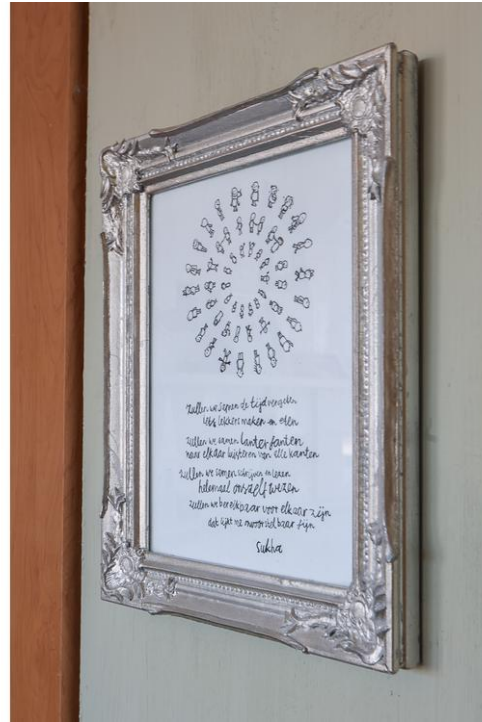 zullen we samen de tijd vergeten
iets lekkers maken en eten
zullen we samen lanterfanten
naar elkaar luisteren van alle kanten
zullen we samen schrijven en lezen
helemaal onszelf wezen
zullen we bereikbaar voor elkaar zijn
dat lijkt me onvoorstelbaar fijn
Sukha